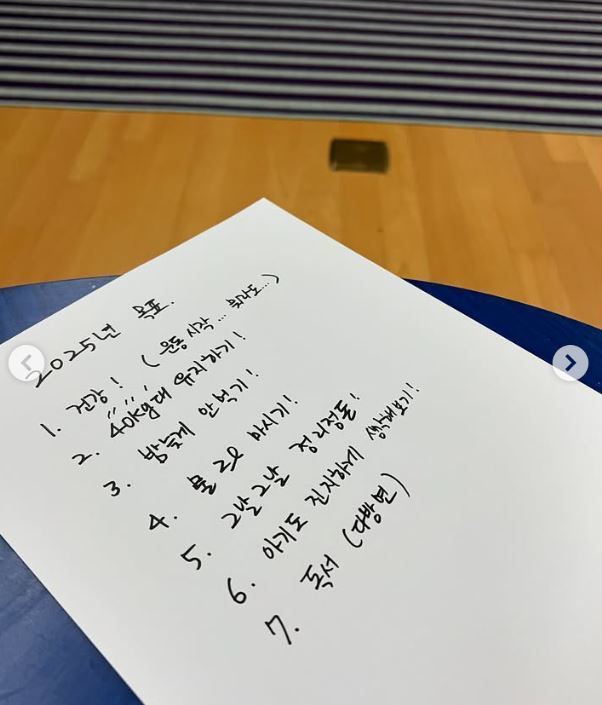 2025년 목표.
1. 건강! (운동시작... 뭐라도...)
2. 40kg대 유지하기!
3. 밤늦게 안먹기!
4. 물 2l 마시기!
5. 그날그날 정리정돈!
6. 아기도 진지하게 생각해보기!
7. 독서 (다방면)